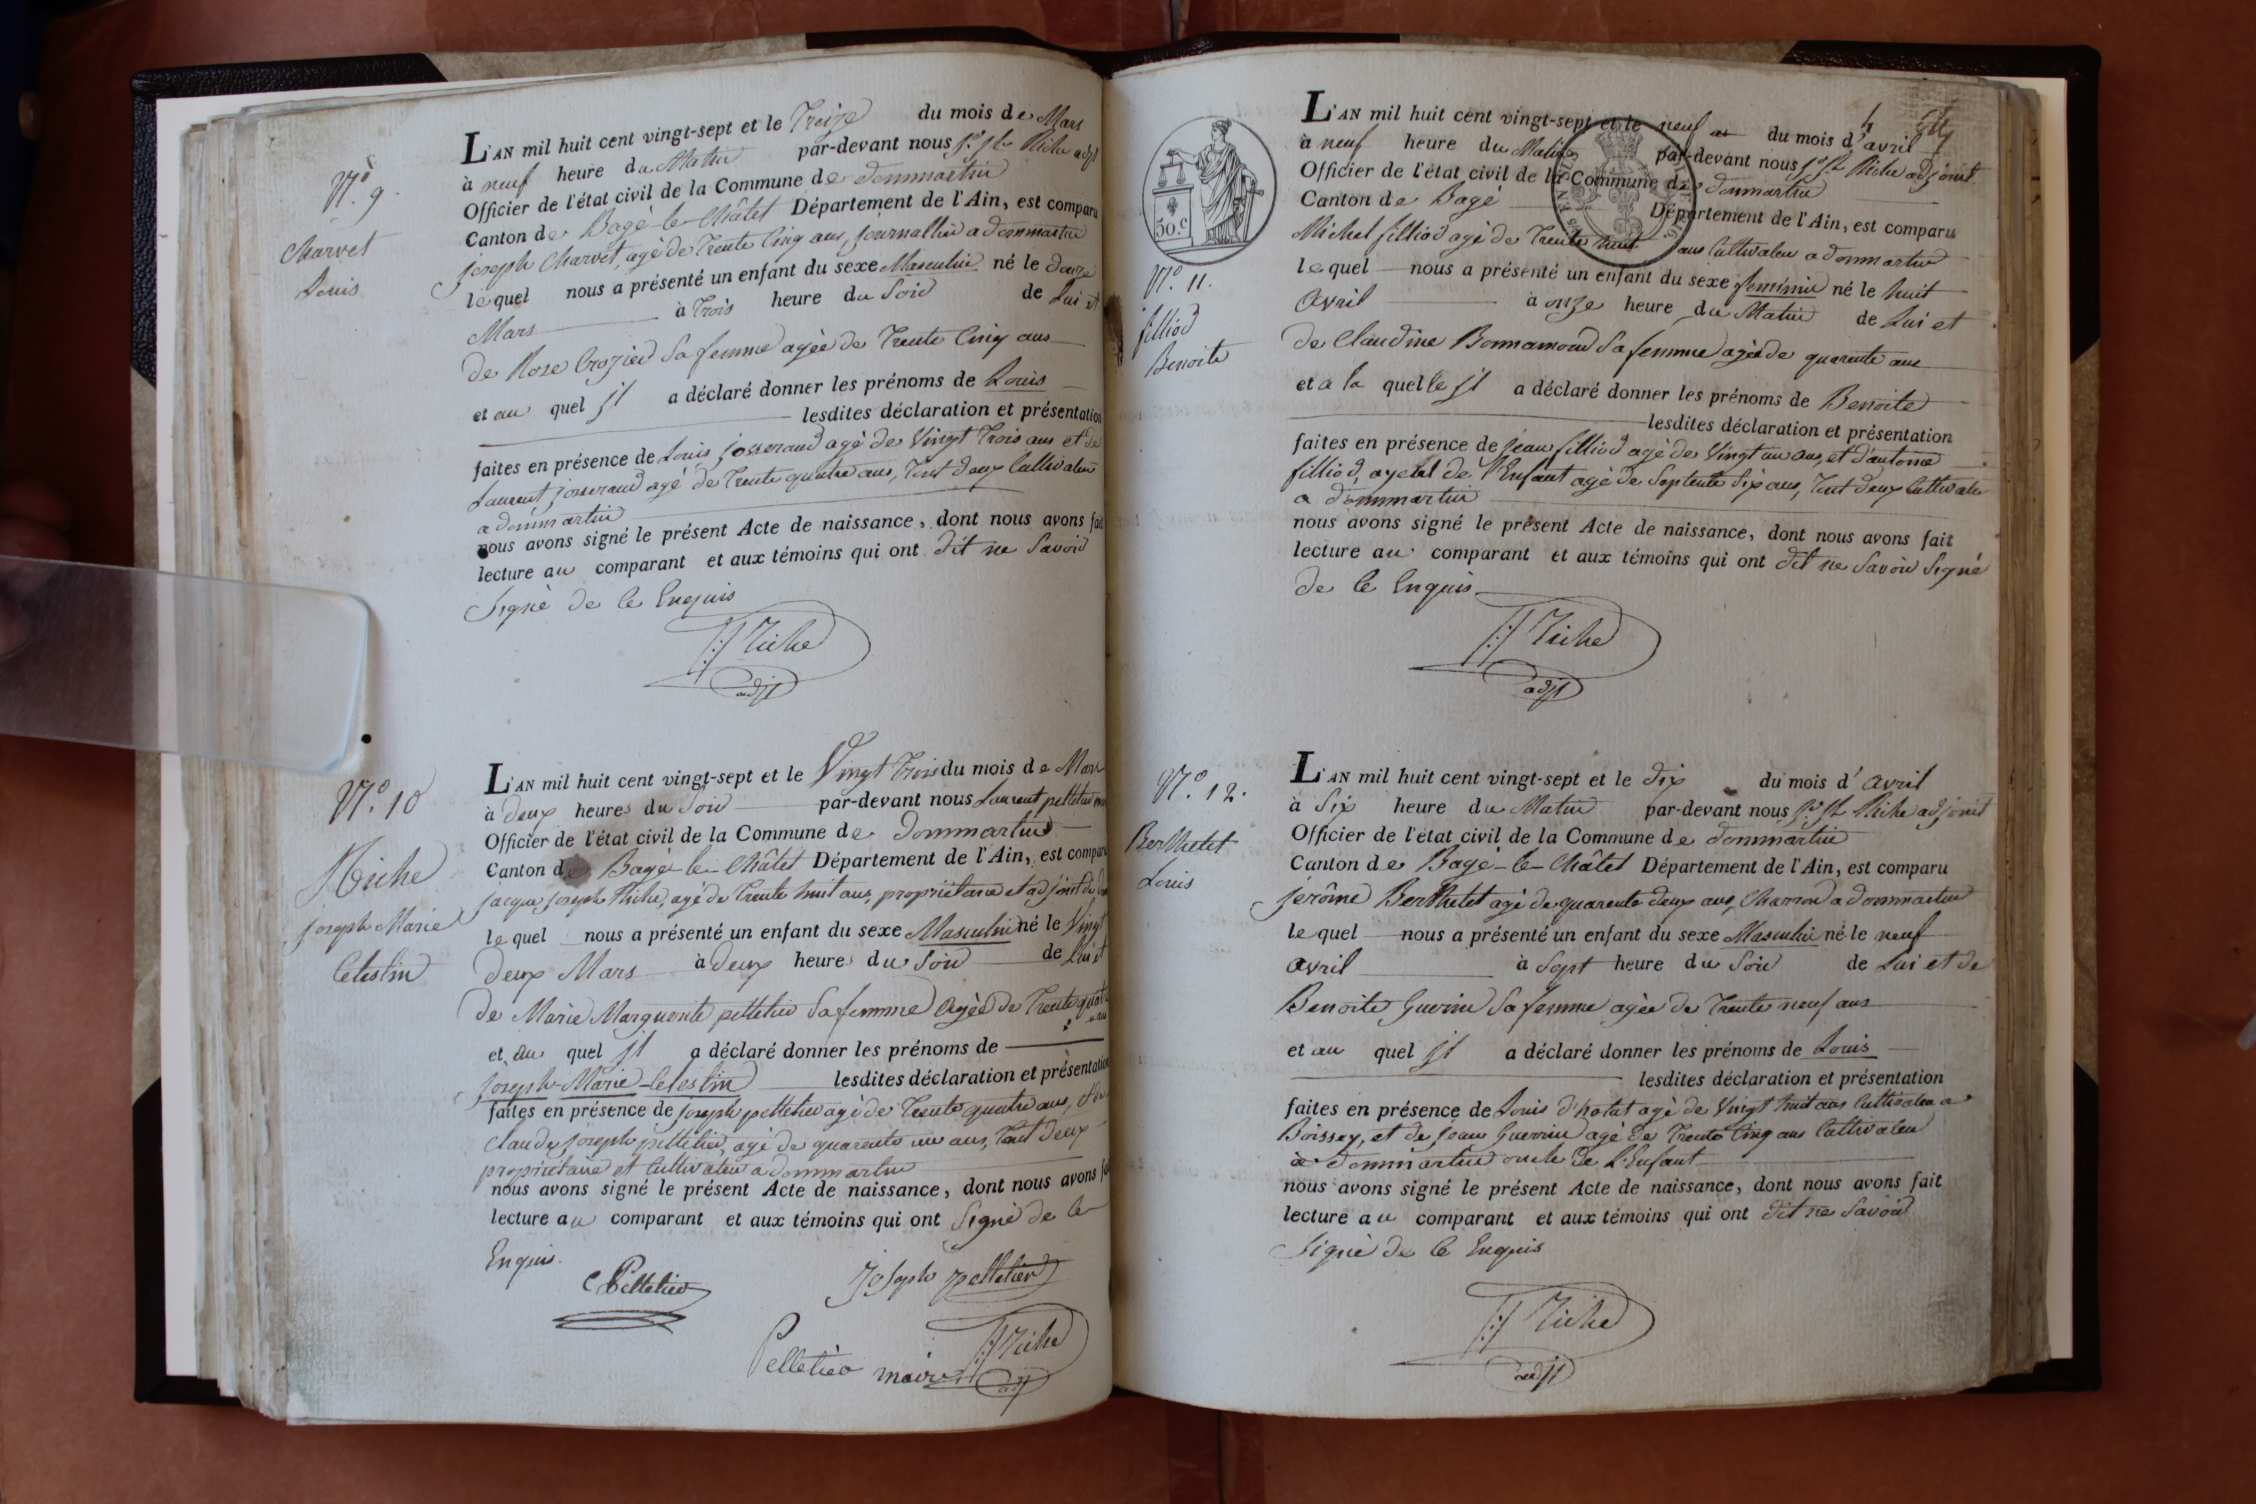 N.º 9.
Charvet
Louis
L'AN mil huit cent vingt-sept et le Treize du mois de Mars
à neuf heure du Matin par-devant nous Jº Jh Riche adjt
Officier de l'état civil de la Commune de dommartin
Canton de Bagé-le-Châtel Département de l'Ain, est comparu
joseph Charvet, agé de Trente Cinq ans, journallier a dommartin
lequel nous a présenté un enfant du sexe Masculin né le douze
Mars à Trois heure du Soir de Lui et
de Rose Crozier Sa femme agée de Trente Cinq ans
et au quel jl a déclaré donner les prénoms de Louis
lesdites déclaration et présentation
faites en présence de Louis josserand agé de Vingt Trois ans et de
Laurent josserand agé de Trente quatre ans, Tout deux Cultivateur
a dommartin
nous avons signé le présent Acte de naissance, dont nous avons fait
lecture au comparant et aux témoins qui ont dit ne Savoir
Signé de ce Enquis
Riche
adjt
N.º 10
Riche
joseph Marie
Celestin
L'AN mil huit cent vingt-sept et le Vingt Trois du mois de Mars
à deux heures du Soir par-devant nous Laurent pelletier
Officier de l'état civil de la Commune de Dommartin
Canton de Bagé-le-Châtel Département de l'Ain, est comparu
jacque joseph Riche, agé de Trente huit ans, propriétaire et adjoint de
lequel nous a présenté un enfant du sexe Masculin né le Vingt
deux Mars à deux heures du Soir de Lui et
de Marie Marguerite pelletier Sa femme Agée de Trente quatre
ans
et au quel jl a déclaré donner les prénoms de
joseph-Marie-Celestin lesdites déclaration et présentation
faites en présence de joseph pelletier agé de Trente quatre ans, et de
Claude joseph pelletier, agé de quarente un ans, Tout deux
propriétaire et Cultivateur a dommartin
nous avons signé le présent Acte de naissance, dont nous avons fait
lecture au comparant et aux témoins qui ont Signé de ce
Enquis.
C Pelletier Joseph pelletier
Pelletier maire Riche
adjt
30.c
N.º 11.
filliod
Benoite
4
L'AN mil huit cent vingt-sept et le neuf du mois d'avril
à neuf heure du Matin par-devant nous Jº Jh Riche adjoint
Officier de l'état civil de la Commune de dommartin
Canton de Bagé Département de l'Ain, est comparu
Michel filliod agé de Trente huit ans Cultivateur a dommartin
lequel nous a présenté un enfant du sexe feminin né le huit
Avril à onze heure du Matin de Lui et
de Claudine Bonnamour Sa femme agée de quarente ans
et a la quelle jl a déclaré donner les prénoms de Benoite
lesdites déclaration et présentation
faites en présence de jean filliod agé de Vingt un ans, et d'antoine
filliod, ayeul de l'Enfant agé de Septente Six ans, Tout deux Cultivateur
a dommartin
nous avons signé le présent Acte de naissance, dont nous avons fait
lecture au comparant et aux témoins qui ont dit ne Savoir Signé
de ce Enquis
Riche
adjt
N.º 12.
Berthelet
Louis
L'AN mil huit cent vingt-sept et le dix du mois d'avril
à Six heure du Matin par-devant nous Jº Jh Riche adjoint
Officier de l'état civil de la Commune de dommartin
Canton de Bagé-le-Châtel Département de l'Ain, est comparu
jerôme Berthelet agé de quarente deux ans, Charron a dommartin
lequel nous a présenté un enfant du sexe Masculin né le neuf
Avril à Sept heure du Soir de Lui et de
Benoite Guerin Sa femme agée de Trente neuf ans
et au quel jl a déclaré donner les prénoms de Louis
lesdites déclaration et présentation
faites en présence de Louis d'hotat agé de Vingt huit ans Cultivateur a
Boissey, et de jean Guerrin agé de Trente Cinq ans Cultivateur
a dommartin oncle de L'Enfant
nous avons signé le présent Acte de naissance, dont nous avons fait
lecture au comparant et aux témoins qui ont dit ne Savoir
Signé de ce Enquis
Riche
adjt